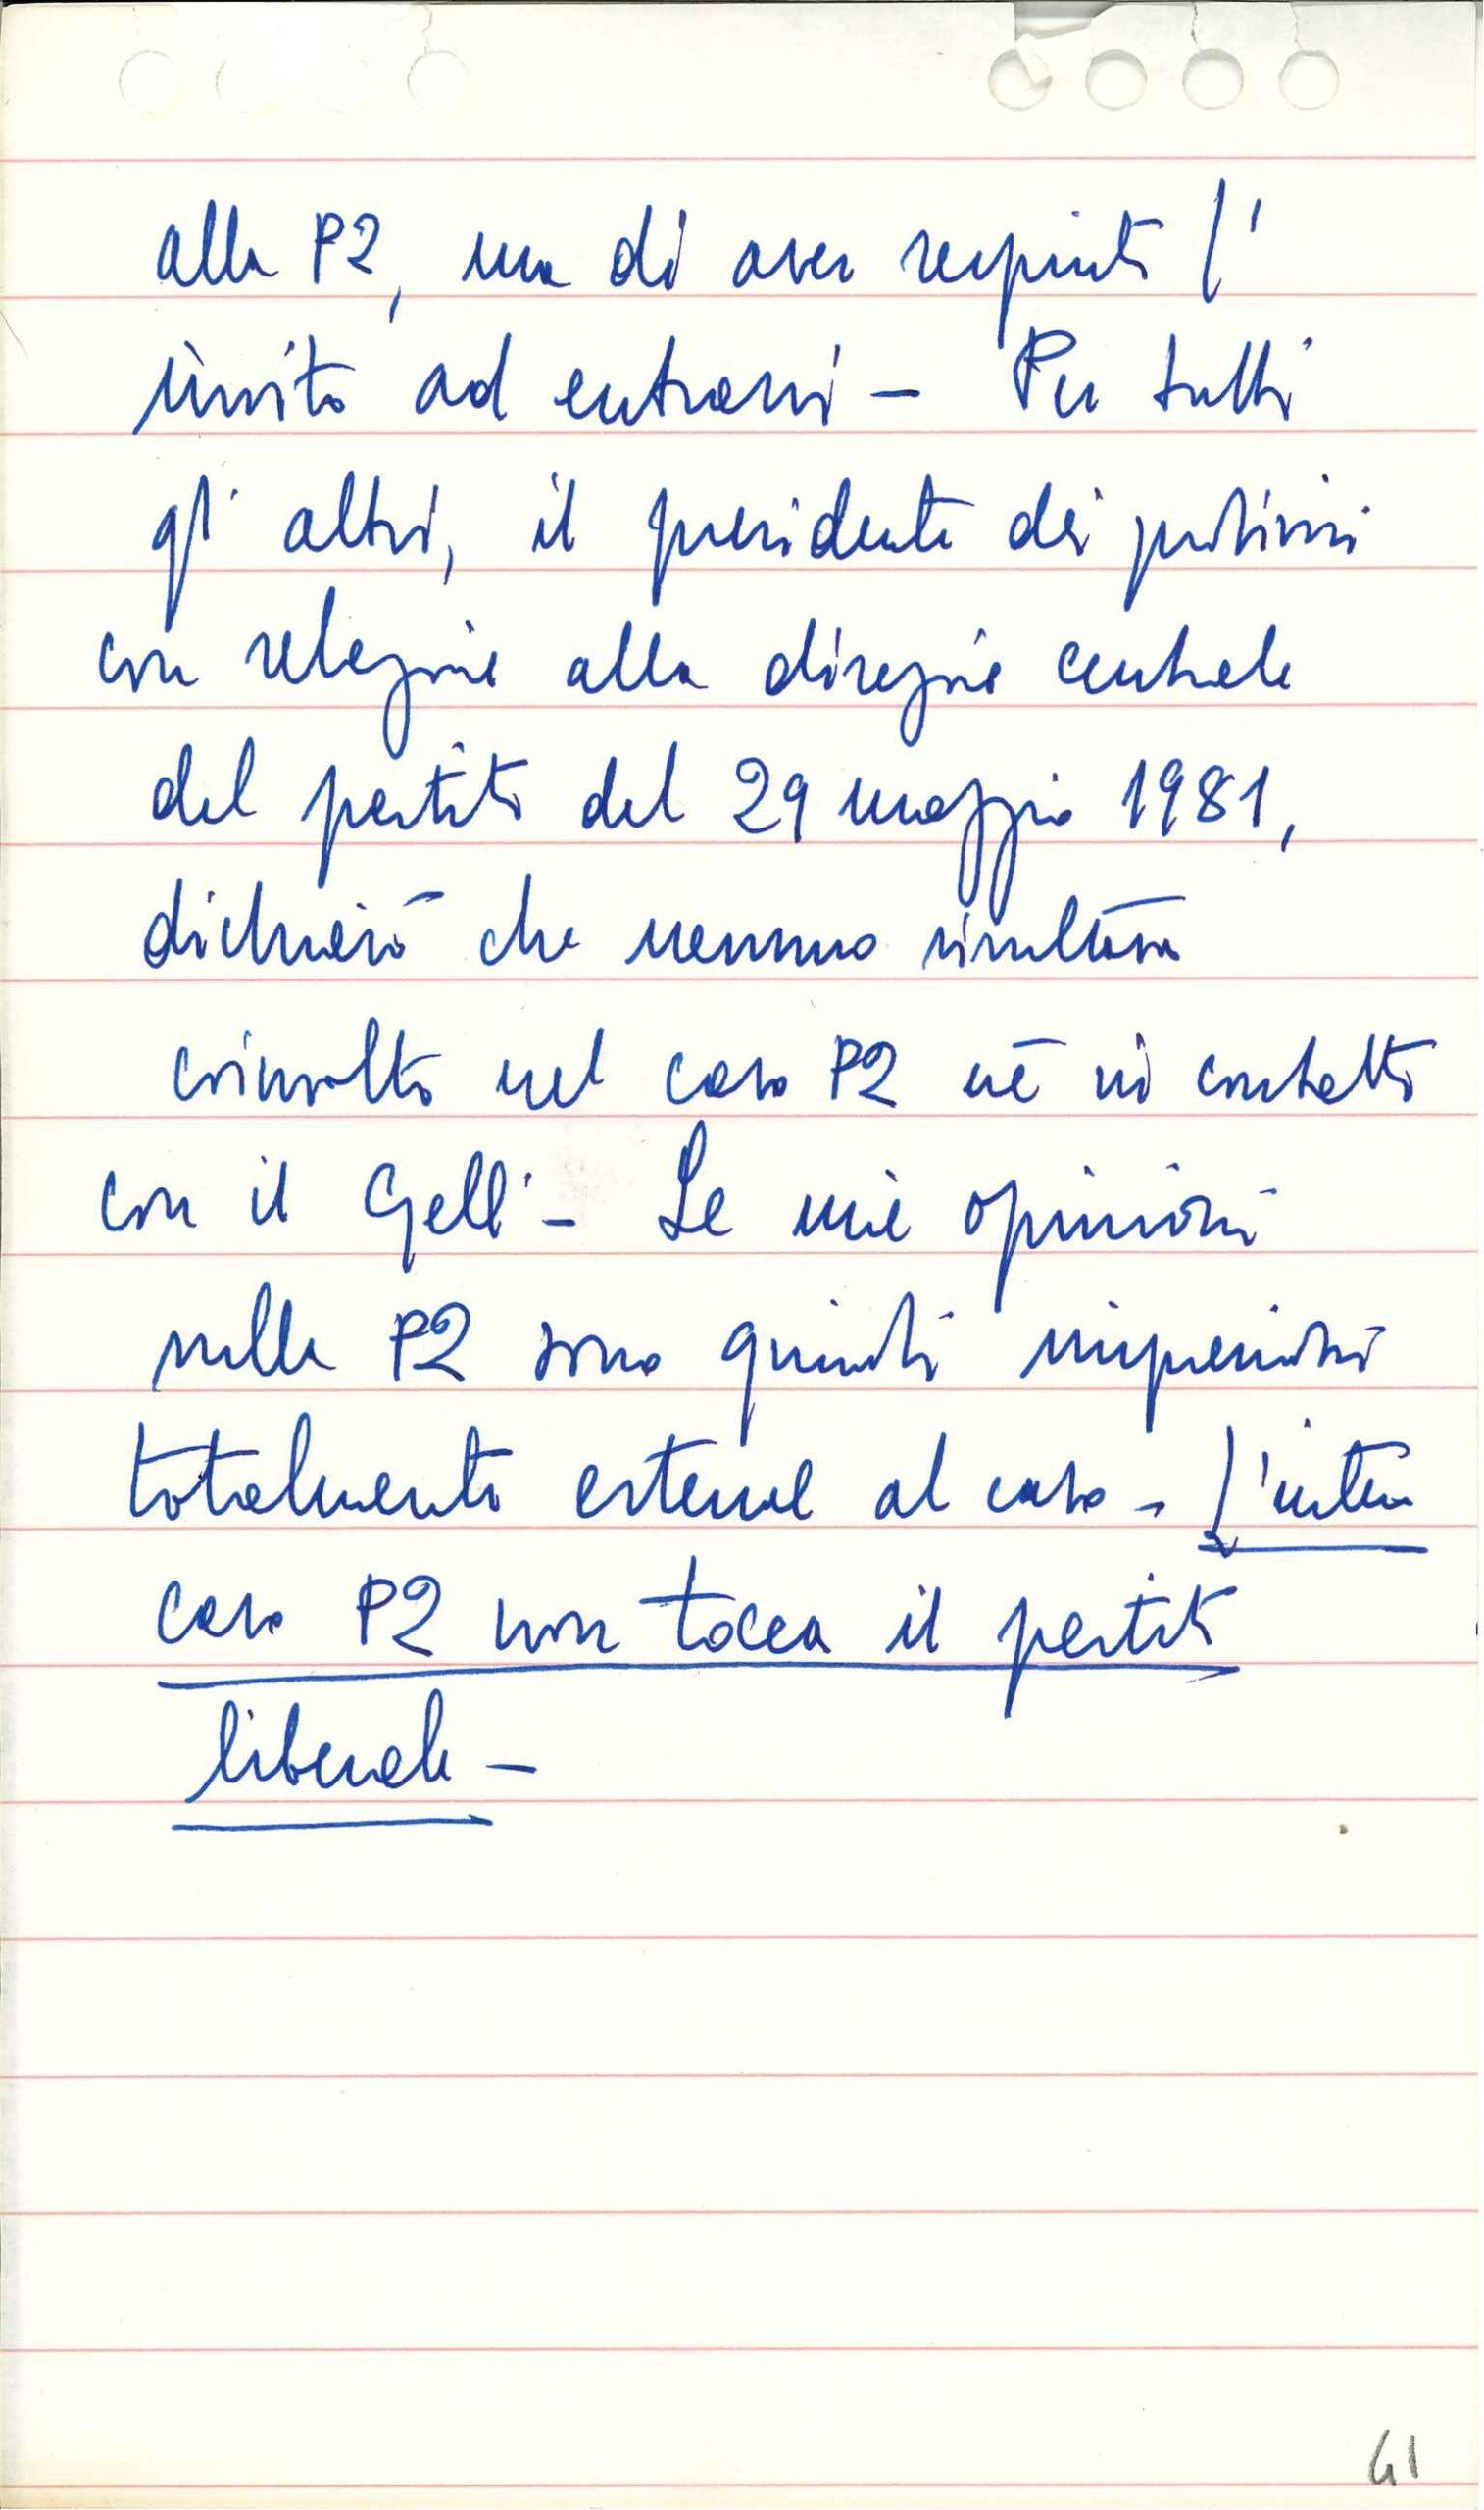 alla P2, ma di aver respinto l'
invito ad entrarvi – Per tutti
gl' altri, il presidente dei probiviri
con relazione alla direzione centrale
del partito del 29 maggio 1981,
dichiarò che nessuno risultava
coinvolto nel caso P2 nè in contatto
con il Gelli – Le mie opinioni
sulla P2 sono quindi impressioni
totalmente esterne al caso – L'intero
caso P2 non tocca il partito
liberale –
41